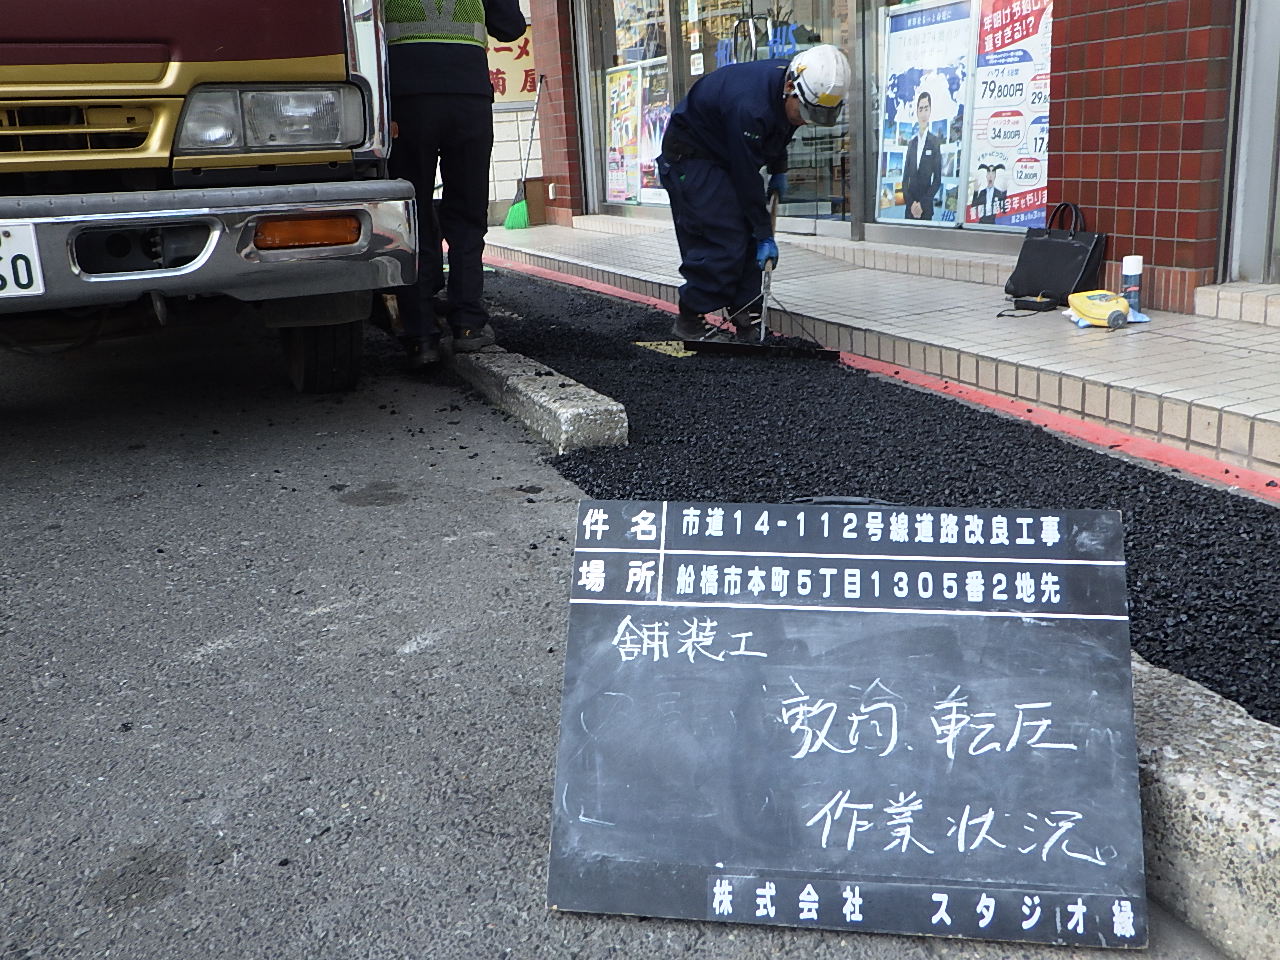 ーメ
菊屋
HIS
年明け予約じゃ
遅すぎる!?
ハワイ
79,800円
29,8
34,800円
17,
12,800円
今年をやりま
HIS
60
件名 市道14-112号線道路改良工事
場所 船橋市本町5丁目1305番2地先
舗装工
敷均、転圧
作業状況。
株式会社 スタジオ緑